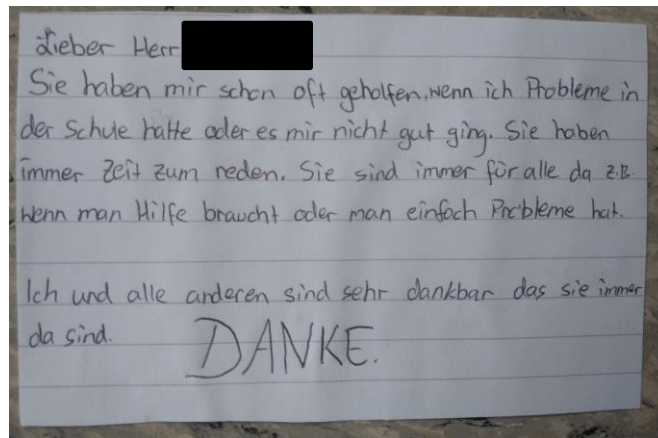 Lieber Herr
Sie haben mir schon oft geholfen, wenn ich Probleme in
der Schule hatte oder es mir nicht gut ging. Sie haben
immer Zeit zum reden. Sie sind immer für alle da z.B.
wenn man Hilfe braucht oder man einfach Probleme hat.
Ich und alle anderen sind sehr dankbar das sie immer
da sind.
DANKE.